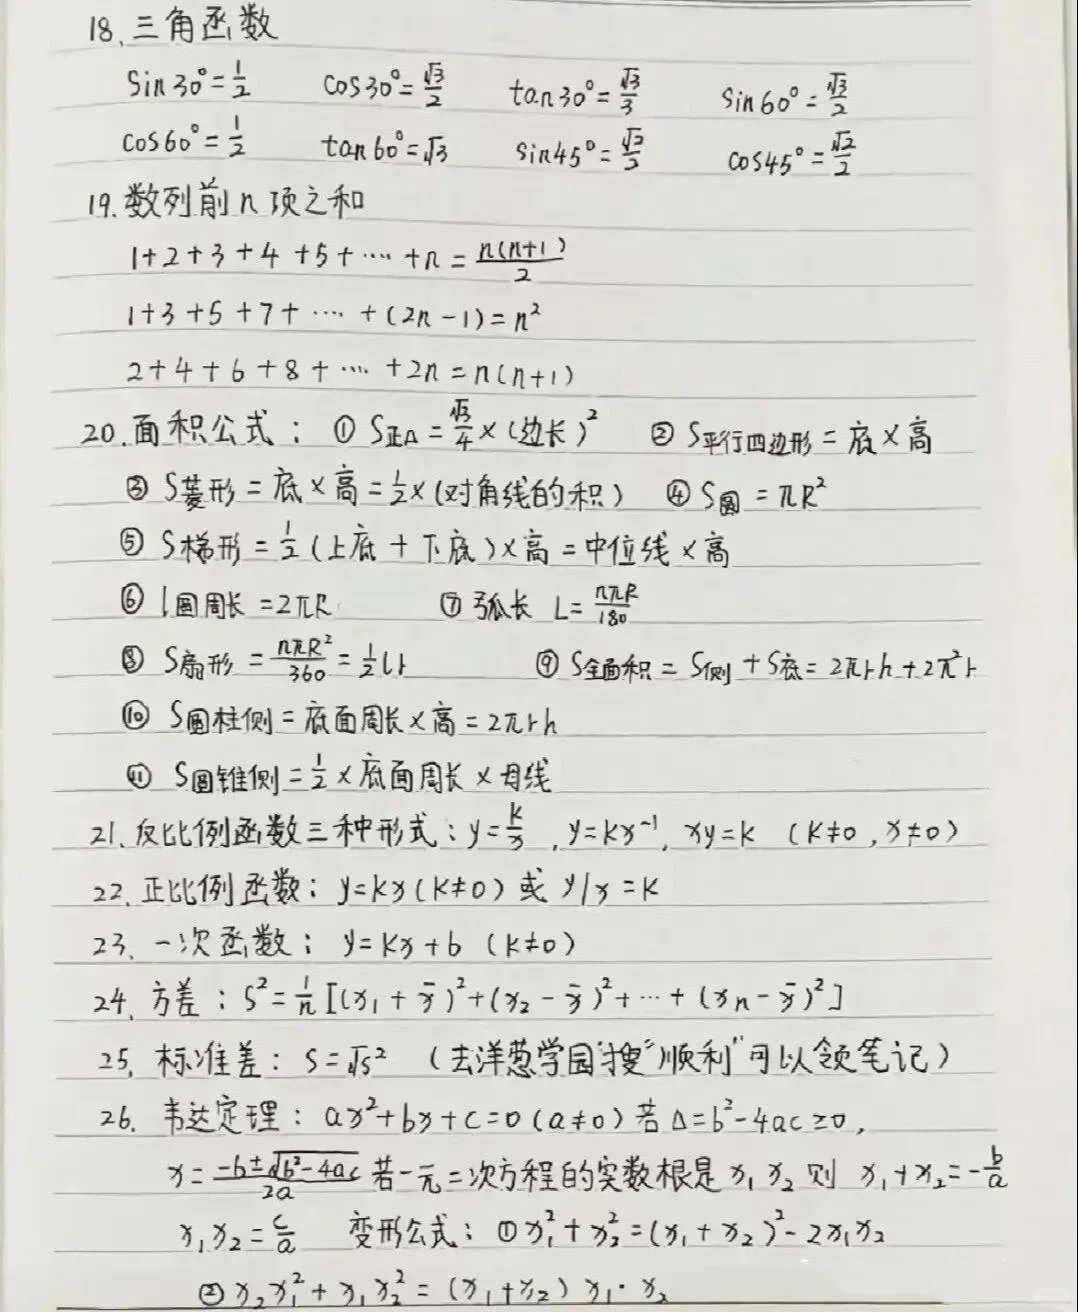 18、三角函数
sin30°=1/2 cos30°=√3/2 tan30°=√3/3 sin60°=√3/2
cos60°=1/2 tan60°=√3 sin45°=√2/2 cos45°=√2/2
19.数列前n项之和
1+2+3+4+5+⋯+n=n(n+1)/2
1+3+5+7+⋯+(2n-1)=n²
2+4+6+8+⋯+2n=n(n+1)
20.面积公式：① S正△=√3/4×(边长)² ② S平行四边形=底×高
③ S菱形=底×高=1/2×(对角线的积) ④ S圆=πR²
⑤ S梯形=1/2(上底+下底)×高=中位线×高
⑥ l圆周长=2πR ⑦ 弧长 L=nπR/180
⑧ S扇形=nπR²/360=1/2lr ⑨ S全面积=S侧+S底=2πrh+2π²r
⑩ S圆柱侧=底面周长×高=2πrh
⑪ S圆锥侧=1/2×底面周长×母线
21、反比例函数三种形式：y=k/x，y=kx⁻¹，xy=k (k≠0,x≠0)
22、正比例函数：y=kx(k≠0)或y/x=k
23、一次函数：y=kx+b (k≠0)
24、方差：S²=1/n[(x₁+x̄)²+(x₂-x̄)²+⋯+(xn-x̄)²]
25、标准差：S=√s² (去洋葱学园"搜"顺利"可以领笔记)
26、韦达定理：ax²+bx+c=0(a≠0)若△=b²-4ac≥0,
x=-b±√b²-4ac/2a 若一元二次方程的实数根是x₁x₂则 x₁+x₂=-b/a
x₁x₂=c/a 变形公式：①x₁²+x₂²=(x₁+x₂)²-2x₁x₂
②x₂x₁²+x₁x₂²=(x₁+x₂)x₁·x₂